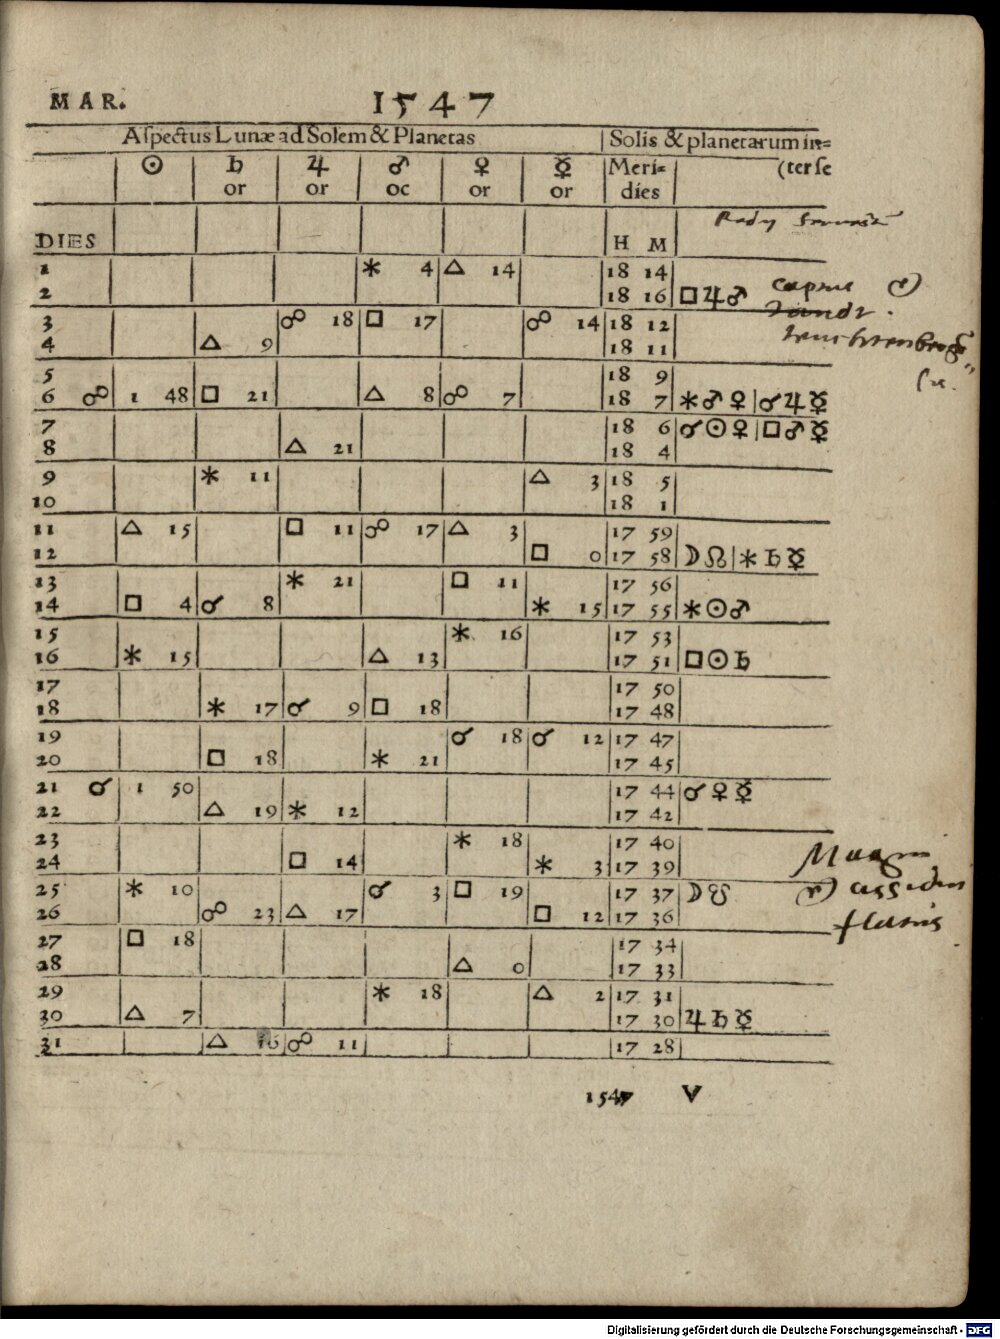 MAR. 1547
Aſpectus Lunæ ad Solem & Planetas | Solis & planetarum in=
☉ ♄ ♃ ♂ ♀ ☿ Meri= (terſe
or or oc or or dies
DIES H M
1 ⚹ 4 △ 14 18 14
2 18 16 □♃♂
3 ☍ 18 □ 17 ☍ 14 18 12
4 △ 9 18 11
5 18 9
6 ☍ 1 48 □ 21 △ 8 ☍ 7 18 7 ⚹♂♀|☌♃☿
7 18 6 ☌☉♀|□♂☿
8 △ 21 18 4
9 ⚹ 11 △ 3 18 5
10 18 1
11 △ 15 □ 11 ☍ 17 △ 3 17 59
12 □ 0 17 58 ☽☊|⚹♄☿
13 ⚹ 21 □ 11 17 56
14 □ 4 ☌ 8 ⚹ 15 17 55 ⚹☉♂
15 ⚹ 16 17 53
16 ⚹ 15 △ 13 17 51 □☉♄
17 17 50
18 ⚹ 17 ☌ 9 □ 18 17 48
19 ☌ 18 ☌ 12 17 47
20 □ 18 ⚹ 21 17 45
21 ☌ 1 50 17 44 ☌♀☿
22 △ 19 ⚹ 12 17 42
23 ⚹ 18 17 40
24 □ 14 ⚹ 3 17 39
25 ⚹ 10 ☌ 3 □ 19 17 37 ☽☋
26 ☍ 23 △ 17 □ 12 17 36
27 □ 18 17 34
28 △ 0 17 33
29 ⚹ 18 △ 2 17 31
30 △ 7 17 30 ♃♄☿
31 △ 16 ☍ 11 17 28
1547 V
Digitalisierung gefördert durch die Deutsche Forschungsgemeinschaft - DFG